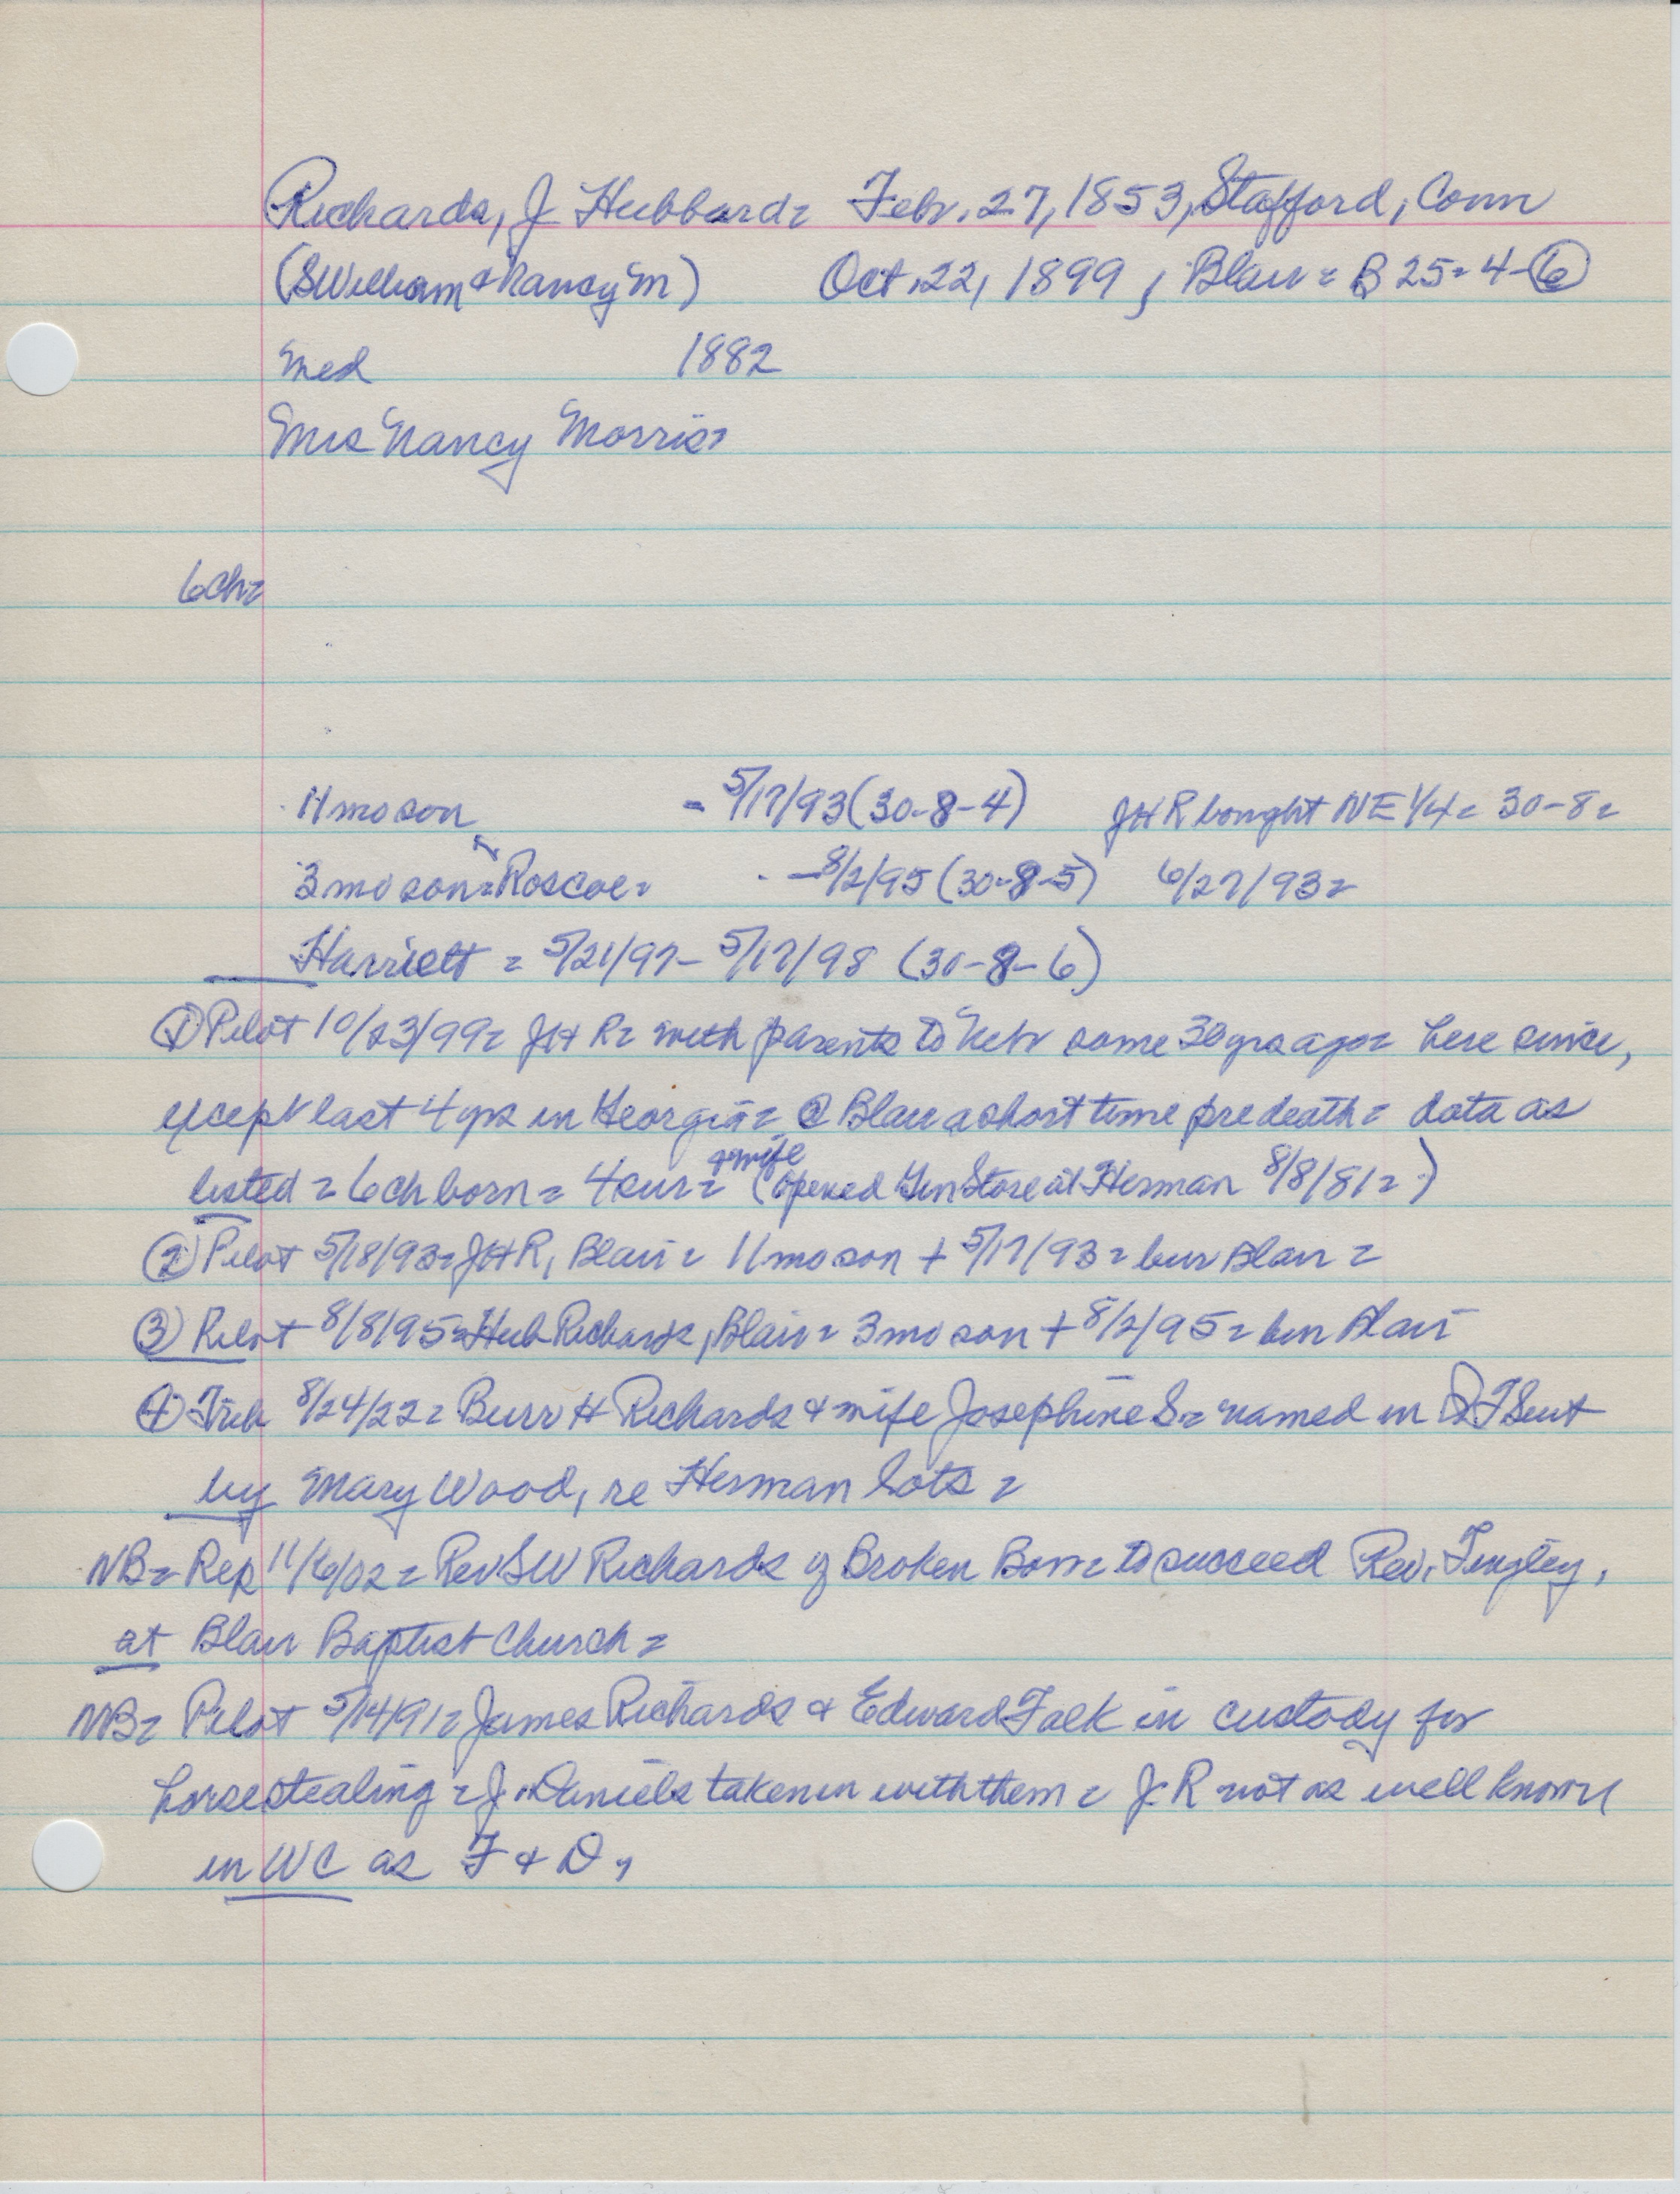 Richards, J Hubbard= Feb. 27, 1853, Stafford, Conn
(SWilliam & Nancy M) Oct. 22, 1899, Blair= B 25=4-6
Med 1882
Mrs Nancy Morris=
6ch=
11 mo son - 5/17/93 (30-8-4) JHR bought NE 1/4= 30-8=
3 mo son= Roscoe= - 8/2/95 (30-8-5) 6/27/93=
Harriett = 5/21/97- 5/17/98 (30-8-6)
① Pilot 10/23/99= JHR= with parents to Nebr some 30 yrs ago= here since,
except last 4 yrs in Georgia= @ Blair a short time predeath= data as
listed = 6 ch born= 4 sur= + wife (opened Gen Store at Herman 8/8/81=)
② Pilot 5/18/93= JHR, Blair= 11 mo son + 5/17/93= bur Blair=
③ Pilot 8/8/95= Hub Richards, Blair= 3 mo son + 8/2/95= bur Blair
④ Trib 8/24/22= Burr H Richards & wife Josephine S= named in QT Suit
by Mary Wood, re Herman Lots =
NB= Rep 11/6/02= Rev SW Richards of Broken Bow= to succeed Rev. Tingley,
at Blair Baptist Church =
NB= Pilot 5/14/91= James Richards & Edward Falk in custody for
horsestealing = J. Daniels taken in with them = J.R not as well known
in WC as F & D,